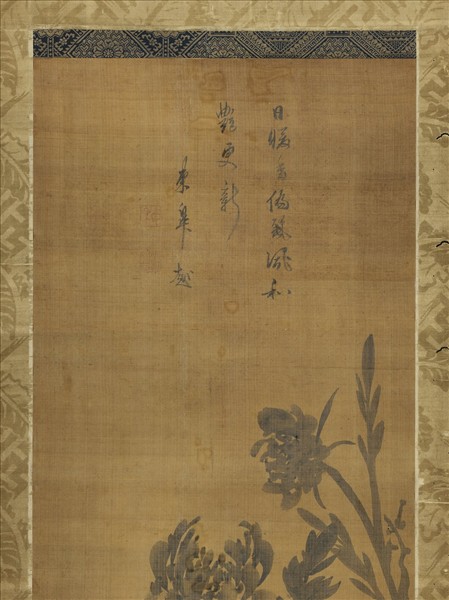 日暖香偏風和
艷更新
東皐越